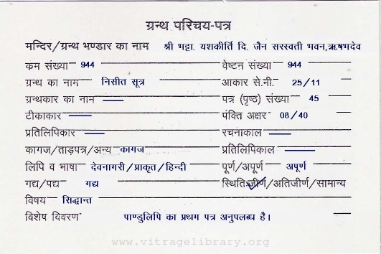 ग्रन्थ परिचय-पत्र
मन्दिर/ग्रन्थ भण्डार का नाम श्री भट्टा. यशकीर्ति दि. जैन सरस्वती भवन, ऋषभदेव
क्रम संख्या 944 वेष्टन संख्या 944
ग्रन्थ का नाम निसीत सूत्र आकार से.मी. 25/11
ग्रन्थकार का नाम पत्र (पृष्ठ) संख्या 45
टीकाकार पंक्ति अक्षर 08/40
प्रतिलिपिकार रचनाकाल
कागज/ताड़पत्र/अन्य कागज प्रतिलिपिकाल
लिपि व भाषा देवनागरी/प्राकृत/हिन्दी पूर्ण/अपूर्ण अपूर्ण
गद्य/पद्य गद्य स्थिति जीर्ण/अतिजीर्ण/सामान्य
विषय सिद्धान्त
विशेष विवरण पाण्डुलिपि का प्रथम पत्र अनुपलब्ध है।
www.vitragelibrary.org